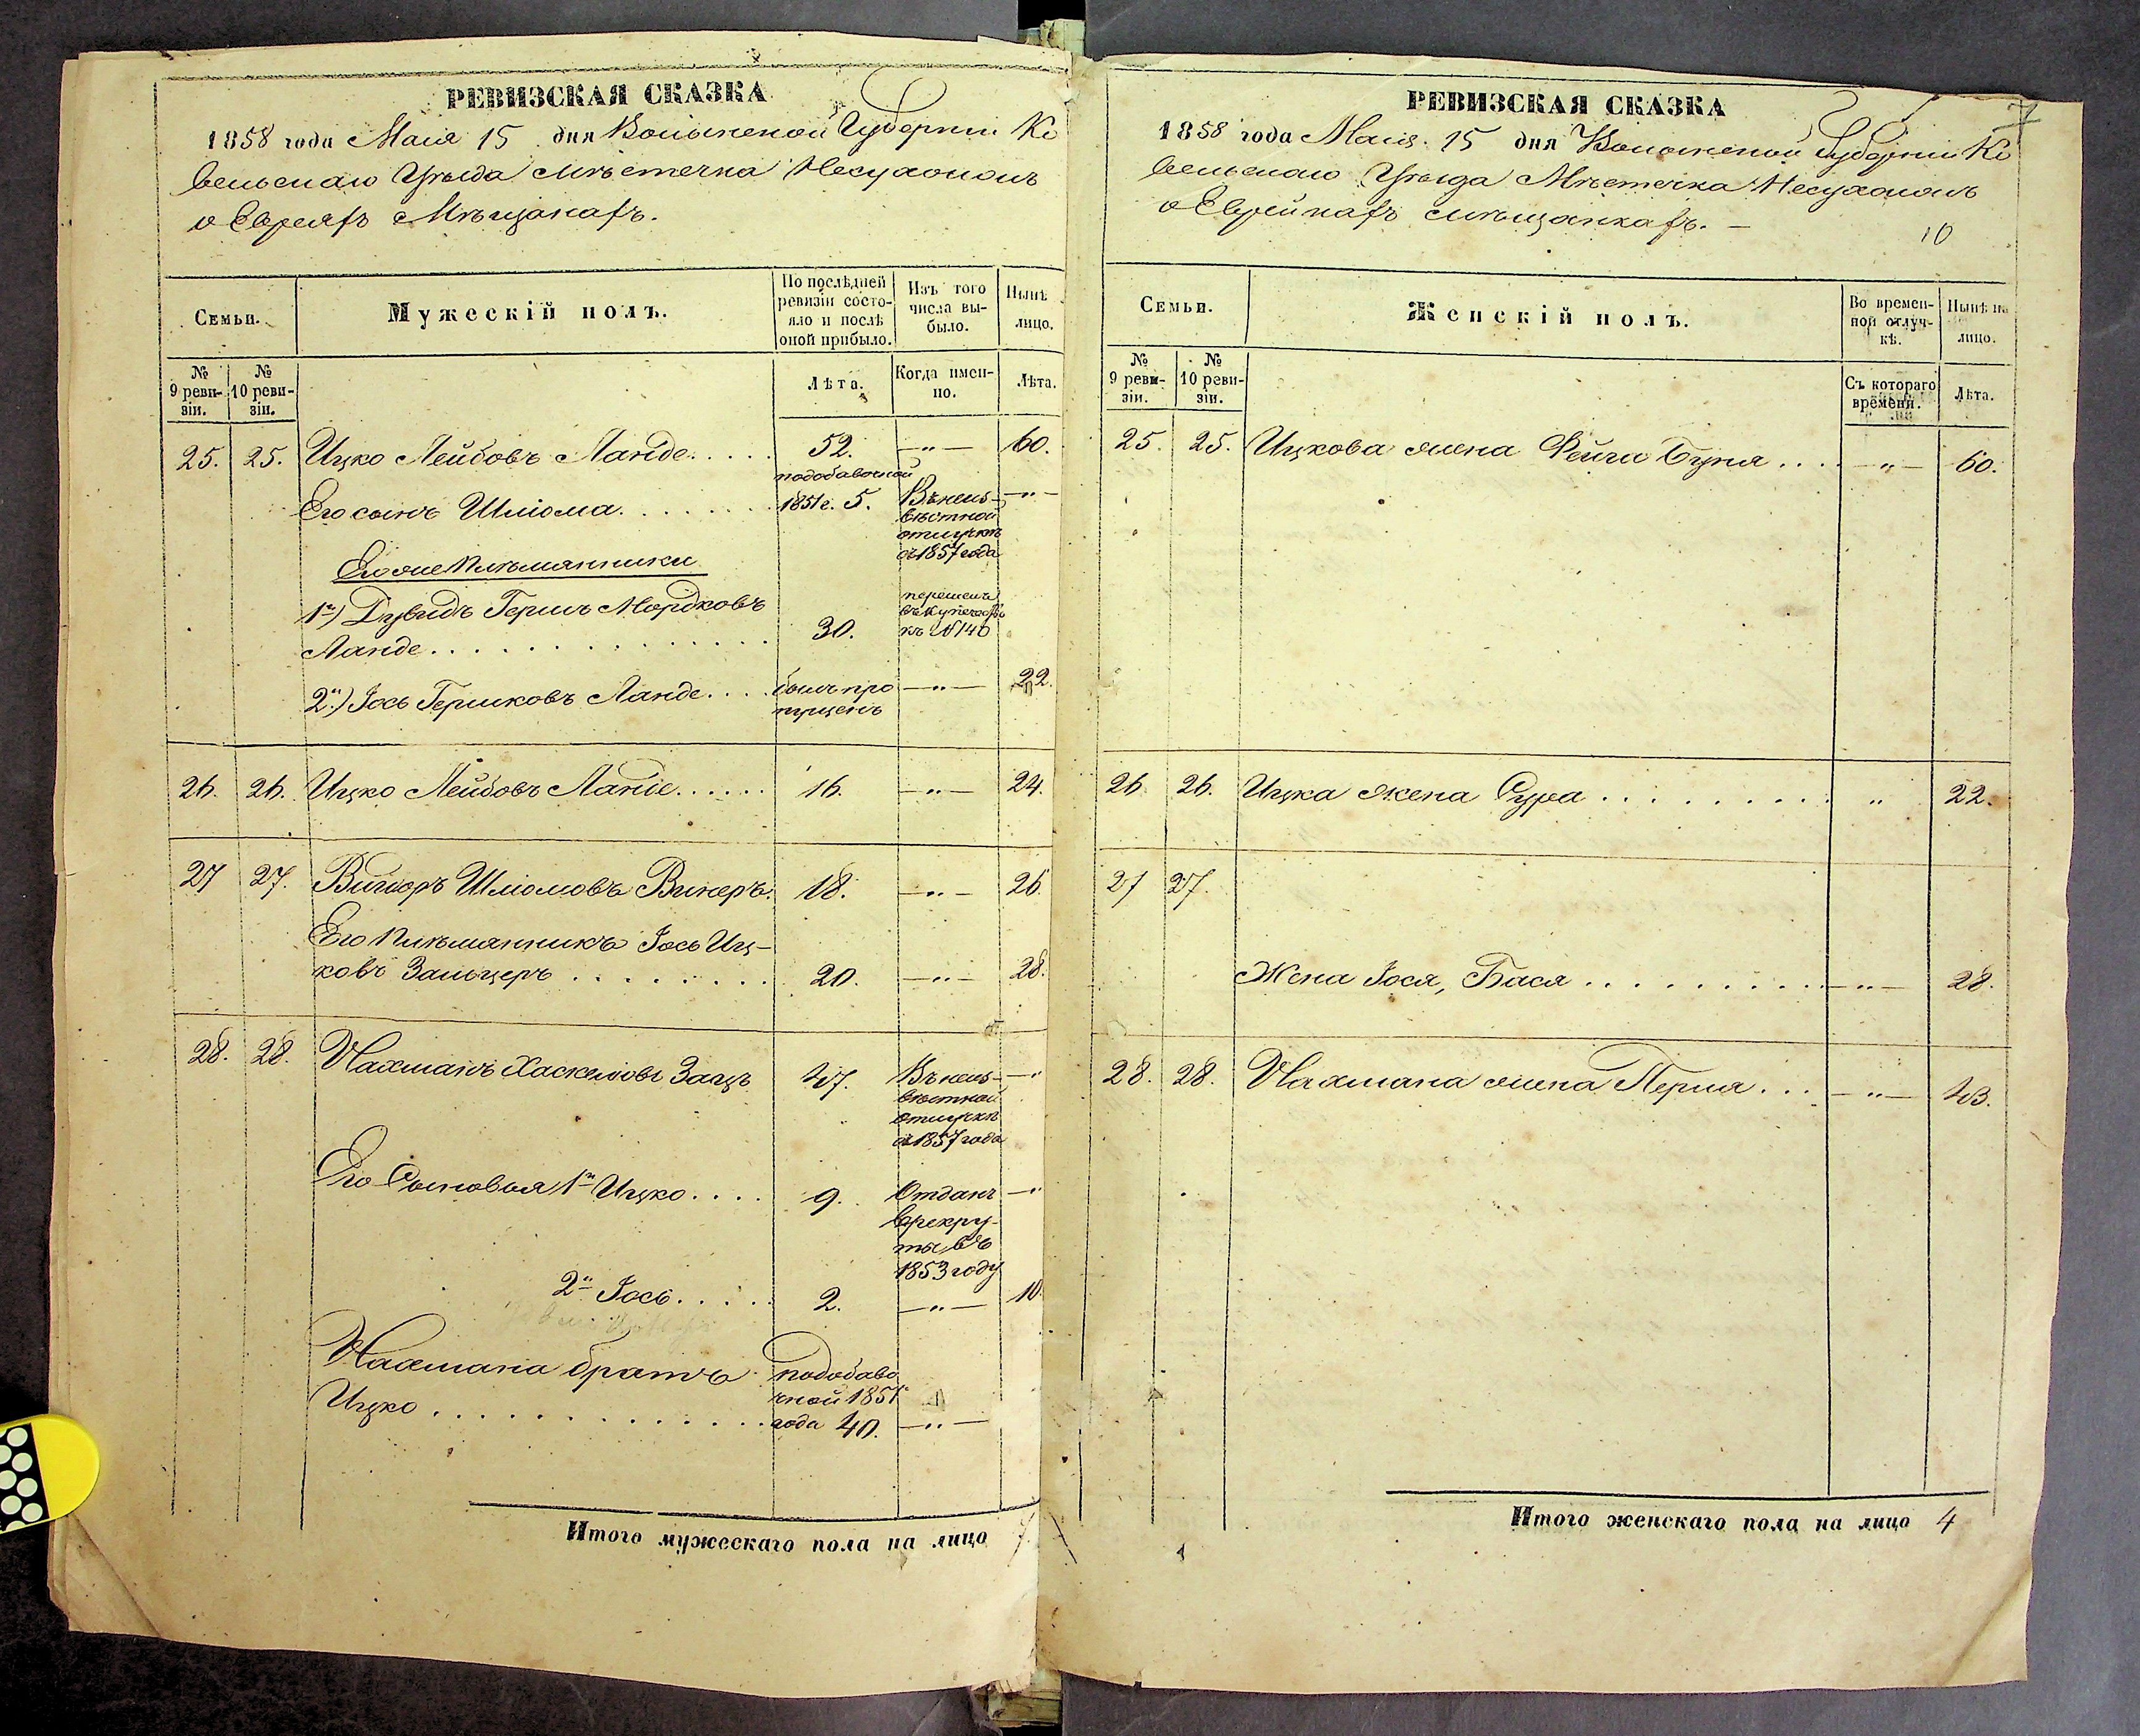 РЕВИЗСКАЯ СКАЗКА
1858 года Маія 15 дня Волынской Губерніи Ко
вельскаго Уѣзда Мѣстечка Несухоижъ
о Евреяхъ Мѣщанахъ.
Семьи.
Мужескій полъ.
По послѣдней ревизіи состояло и послѣ оной прибыло.
Изъ того числа выбыло.
Нынѣ лицо.
№ 9 ревизіи.
№ 10 ревизіи.
Лѣта.
Когда именно.
Лѣта.
25. 25. Ицко Лейбовъ Ланде..... 52. —"— 60.
подобавочной
Его сынъ Шліома........ 1851 г. 5. Въ неиз- —"—
вѣстной
отлучкѣ
съ 1857 года
Его же Племянники
1й) Дувидъ Гершъ Мордковъ
Ланде.............. 30.
перешелъ
въ Купечество
къ №140
2й) Іось Гершковъ Ланде.... былъ про —"— 22.
пущенъ
26. 26. Ицко Лейбовъ Ланде...... 16. —"— 24.
27 27. Шліомовъ Винеръ. 18. —"— 26.
Его Племянникъ Іось Иц-
ковъ Зальцеръ........ 20. —"— 28.
28. 28. Нахманъ Хаскелiовъ Залцъ 47. Въ неиз- —"
вѣстной
отлучкѣ
съ 1857 года
Его Сыновья 1й Ицко.... 9. Отданъ —"
врекру-
ты въ
1853 году
2й Іось..... 2. —"— 10.
Нахмана братъ подобаво
чной 1851
Ицко.............. года 40. —"—
Итого мужескаго пола на лицо 7.
РЕВИЗСКАЯ СКАЗКА
7
1858 года Маія 15 дня Волынской Губерніи Ко
вельскаго Уѣзда Мѣстечка Несухоижъ
о Еврейкахъ мѣщанкахъ. —
10
Семьи.
Женскій полъ.
Во временной отлучкѣ.
Нынѣ на лицо.
№ 9 ревизіи.
№ 10 ревизіи.
Съ котораго времени.
Лѣта.
25. 25. Ицкова жена Фейга Буня.... —"— 60.
26 26. Ицка жена Сура......... " 22.
27 27.
Жена Іося, Бася......... —"— 28.
28. 28. Нахмана жена Перля... —"— 43.
Итого женскаго пола на лицо 4